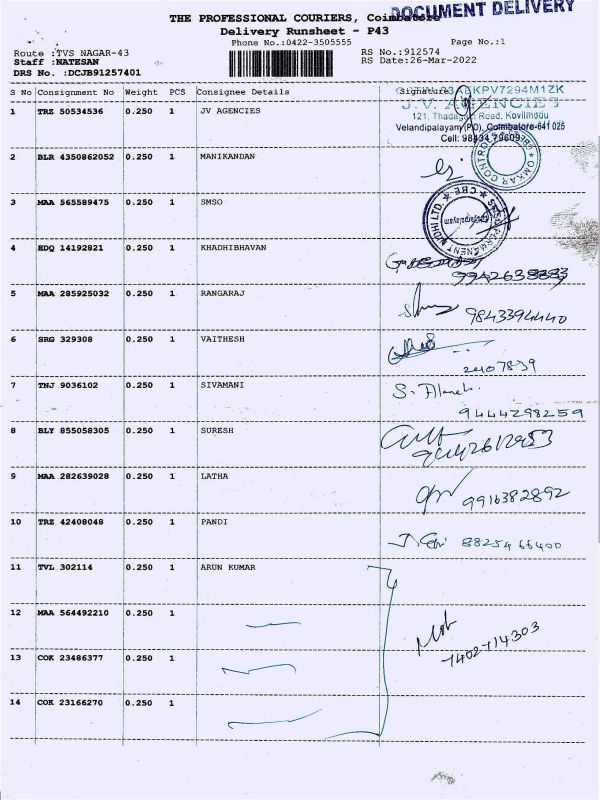 DOCUMENT DELIVERY
THE PROFESSIONAL COURIERS, Coimbatore
Delivery Runsheet - P43
Phone No.:0422-3505555 Page No.:1
Route :TVS NAGAR-43 RS No.:912574
Staff :NATESAN RS Date:26-Mar-2022
DRS No. :DCJB91257401
S No Consignment No Weight PCS Consignee Details Signature
1 TRZ 50534536 0.250 1 JV AGENCIES
J.V. AGENCIES
121, Thadagam Road, Kovilmedu
Velandipalayam (PO), Coimbatore-641 025
Cell: 98434 79609
2 BLR 4350862052 0.250 1 MANIKANDAN
OMKAR CONTROLS
3 MAA 565589475 0.250 1 SMSO
PERMANENT NIDHI LTD
CBE
4 EDQ 14192821 0.250 1 KHADHIBHAVAN
5 MAA 285925032 0.250 1 RANGARAJ 9843394440
6 SRG 329308 0.250 1 VAITHESH
2407839
7 TNJ 9036102 0.250 1 SIVAMANI
9444298259
8 BLY 855058305 0.250 1 SURESH
9 MAA 282639028 0.250 1 LATHA 9916382892
10 TRZ 42408048 0.250 1 PANDI 8825466400
11 TVL 302114 0.250 1 ARUN KUMAR
12 MAA 564492210 0.250 1
7402714303
13 COK 23486377 0.250 1
14 COK 23166270 0.250 1